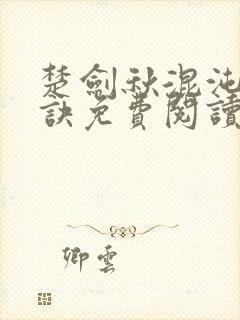 楚劍秋混沌
訣免費閱讀
卿雲